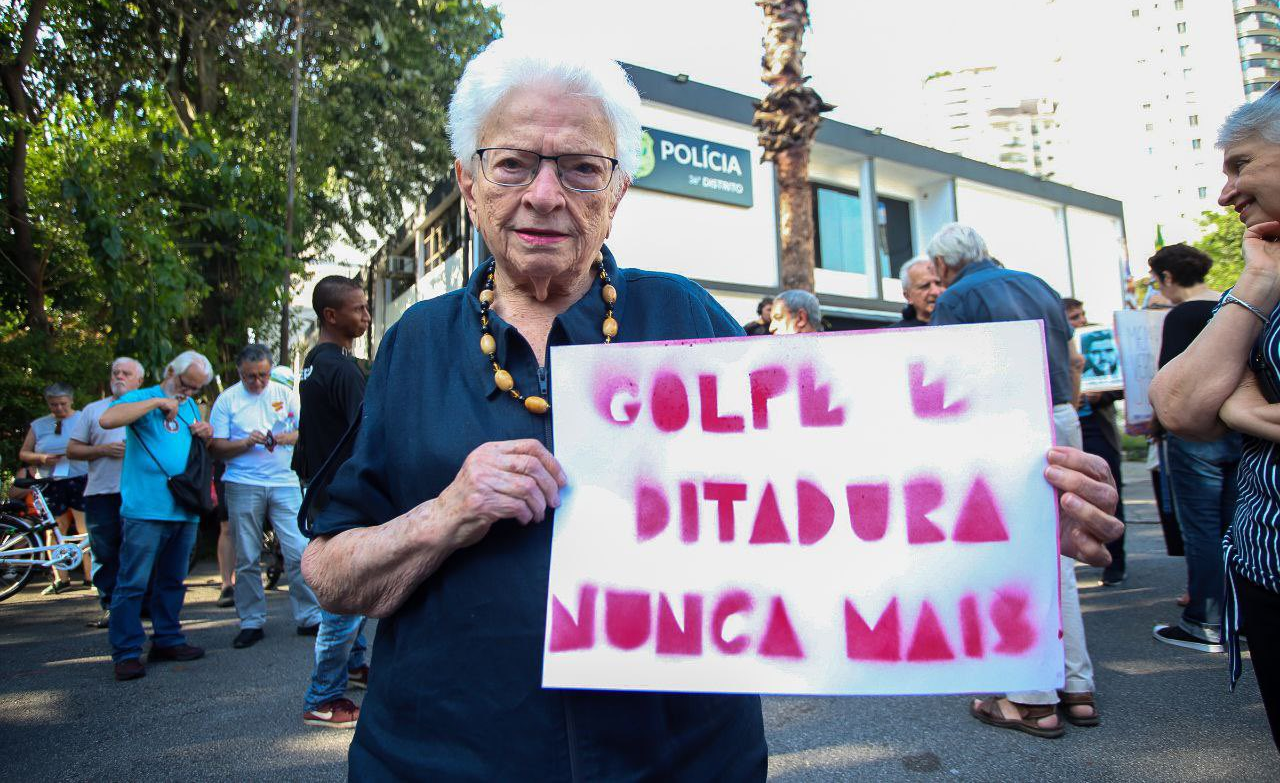 POLÍCIA
36º DISTRITO
GOLPE E
DITADURA
NUNCA MAIS